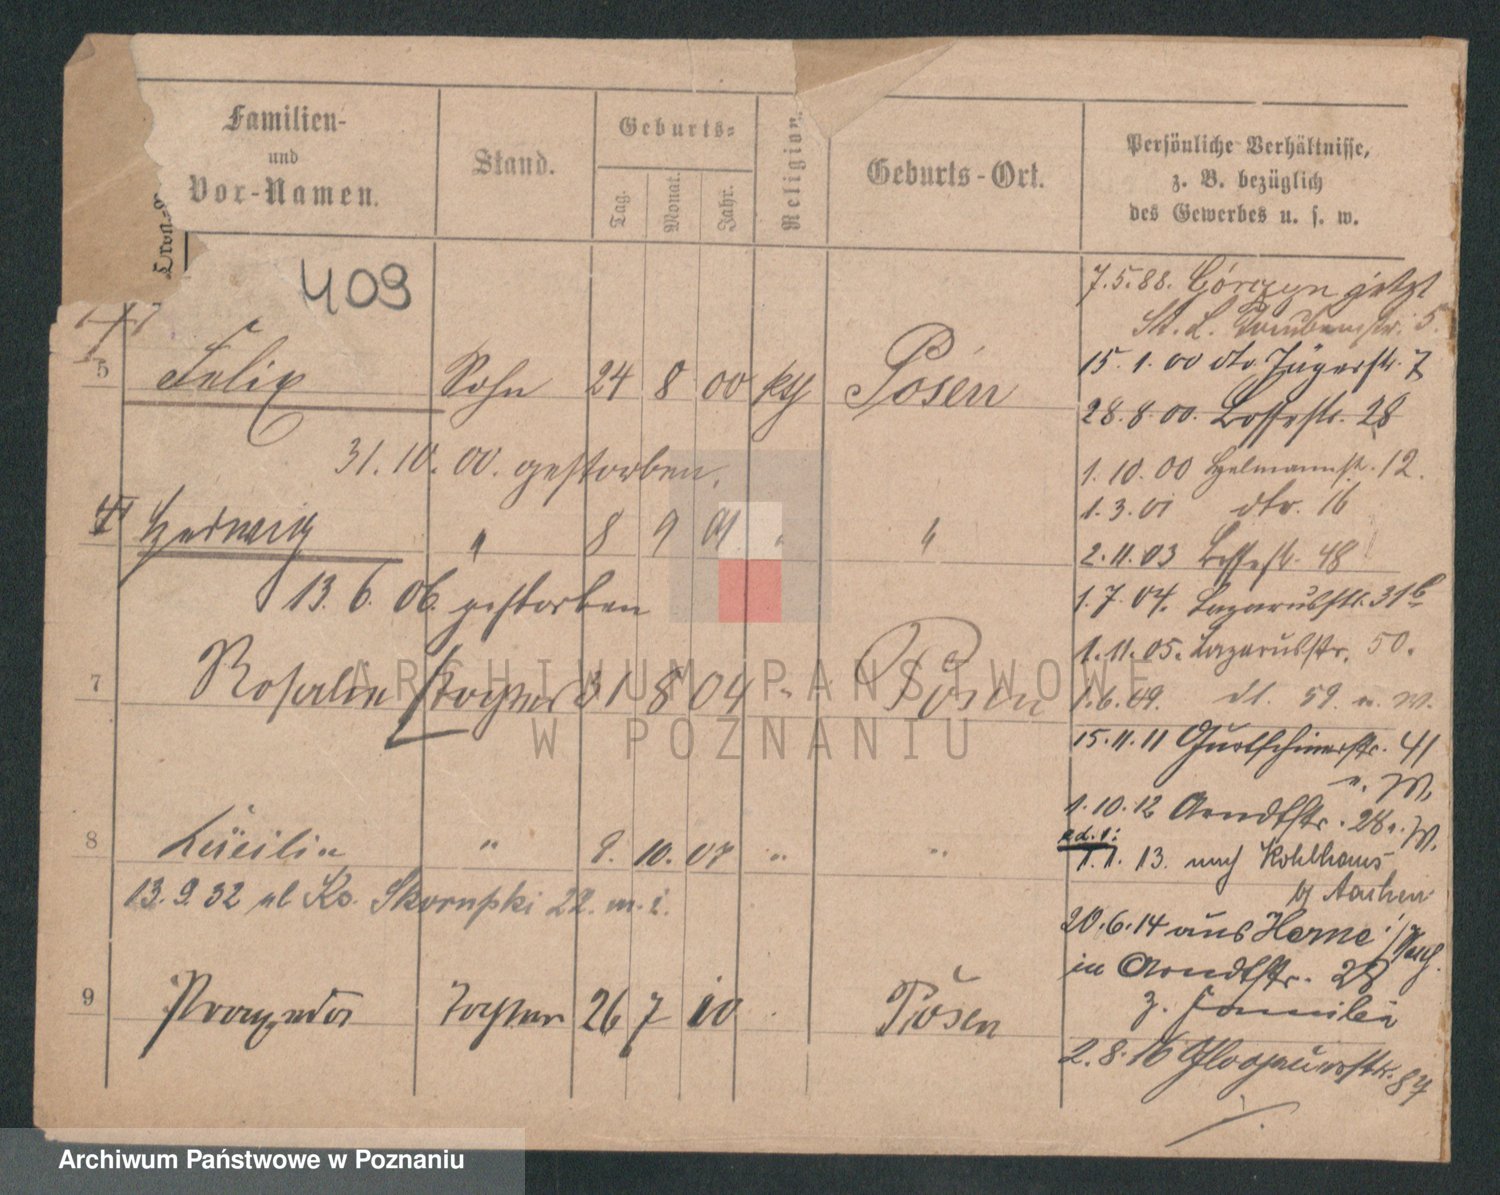 Familien-
und
Vor-Namen.
Stand.
Geburts-
Tag.
Monat.
Jahr.
Religion.
Geburts-Ort.
Persönliche Verhältnisse,
z. B. bezüglich
des Gewerbes u. s. w.
409
5 Felix Sohn 24 8 00 kth Posen
31.10.00. gestorben.
Hedwig " 8 9 01 " "
13. 6. 06. gestorben
7 Rosalie Tochter 31 8 04 " Posen
8 " 9. 10. 07 " "
13.9.32 Skorupski 22.
9 Praxeda Tochter 26 7 10 Posen
7.5.88. Górczyn jetzt
St. L. Taubenstr. 5.
15. 1. 00 dto Jägerstr. 7
28.8.00. Bossestr. 28
1. 10. 00 12.
1.3.01 dto. 16
2.11.03 Bossestr. 48
1. 7. 04. Lazarusstr. 31b
1.11.05. Lazarusstr. 50.
1.6.09. dt. 59. u. W.
15.11.11 Gurtschinerstr. 41
u. W.
1.10.12 Arndtstr. 28 u. W.
ad. 1:
1.1.13. nach Kohlhaus
b/ Aachen
20.6.14 aus Herne
in Arndtstr. 28
z. Familie
2.8.16 Glogauerstr. 87
ARCHIWUM PAŃSTWOWE
W POZNANIU
Archiwum Państwowe w Poznaniu